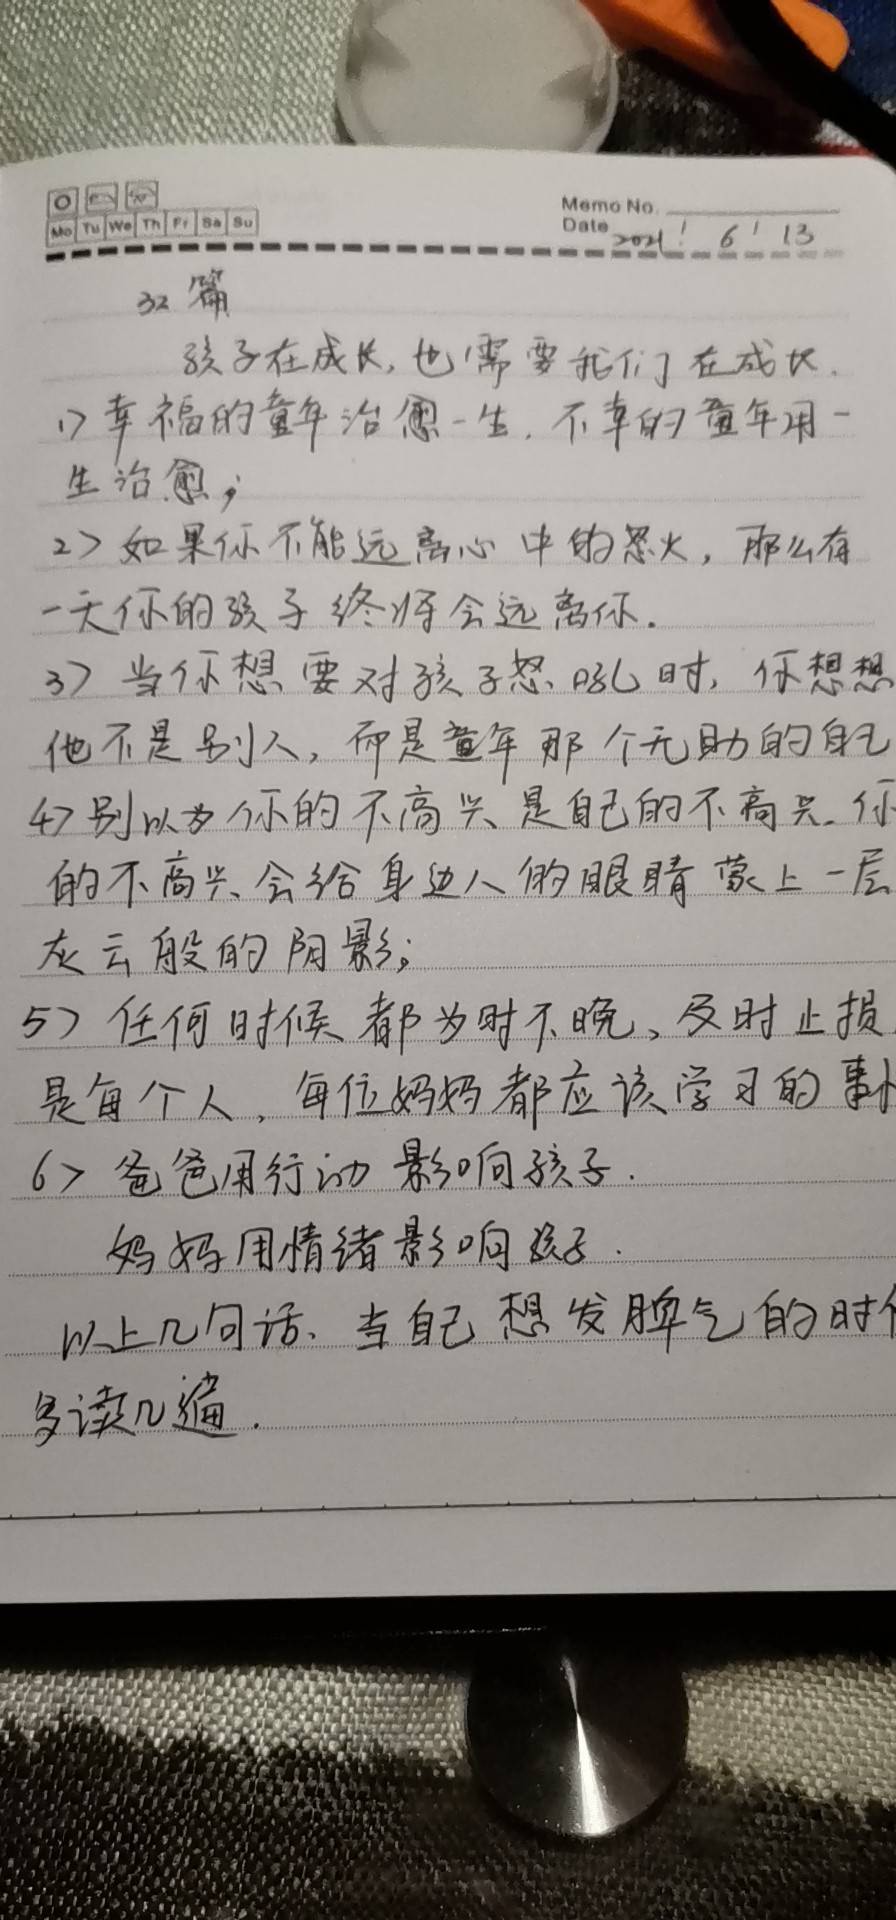 Mo Tu We Th Fr Sa Su
Memo No.
Date 2021 / 6 / 13
32 篇
孩子在成长,也需要我们在成长.
1> 幸福的童年治愈一生,不幸的童年用一
生治愈;
2> 如果你不能远离心中的怒火,那么有
一天你的孩子终将会远离你.
3> 当你想要对孩子怒吼时,你想想
他不是别人,而是童年那个无助的自己
4> 别以为你的不高兴是自己的不高兴.你
的不高兴会给身边人的眼睛蒙上一层
灰云般的阴影;
5> 任何时候都为时不晚、及时止损
是每个人,每位妈妈都应该学习的事
6> 爸爸用行动影响孩子.
妈妈用情绪影响孩子.
以上几句话、当自己想发脾气的时
多读几遍.